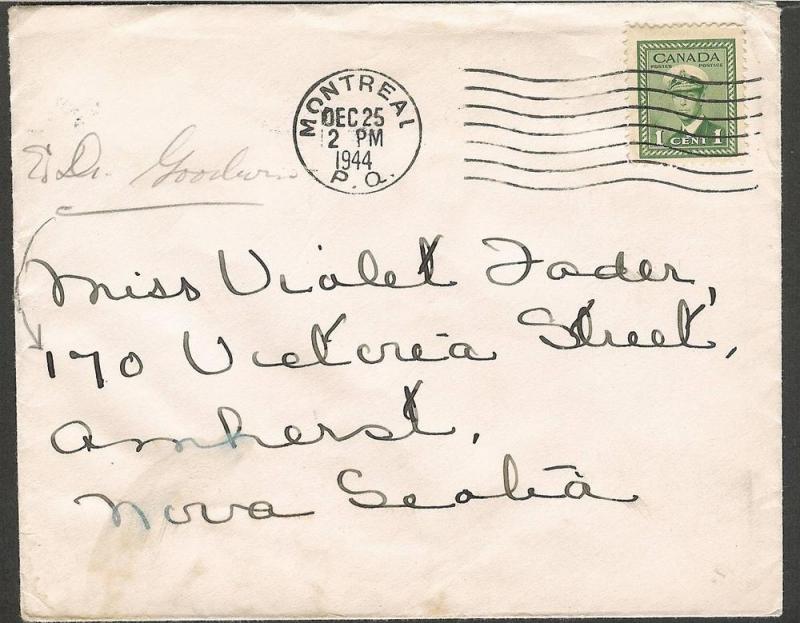 CANADA
POSTES POSTAGE
1 CENT 1
MONTREAL
DEC 25
2 PM
1944
P. Q.
Dr. Goodwin
Miss Violet Fader,
170 Victoria Street,
Amherst,
Nova Scotia